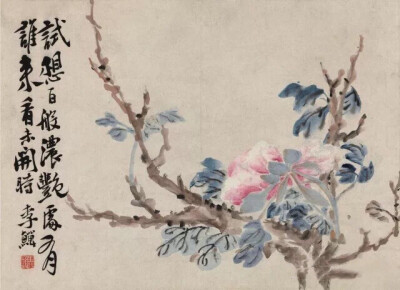 試想百般濃艷處有
誰來看未開時 李鱓